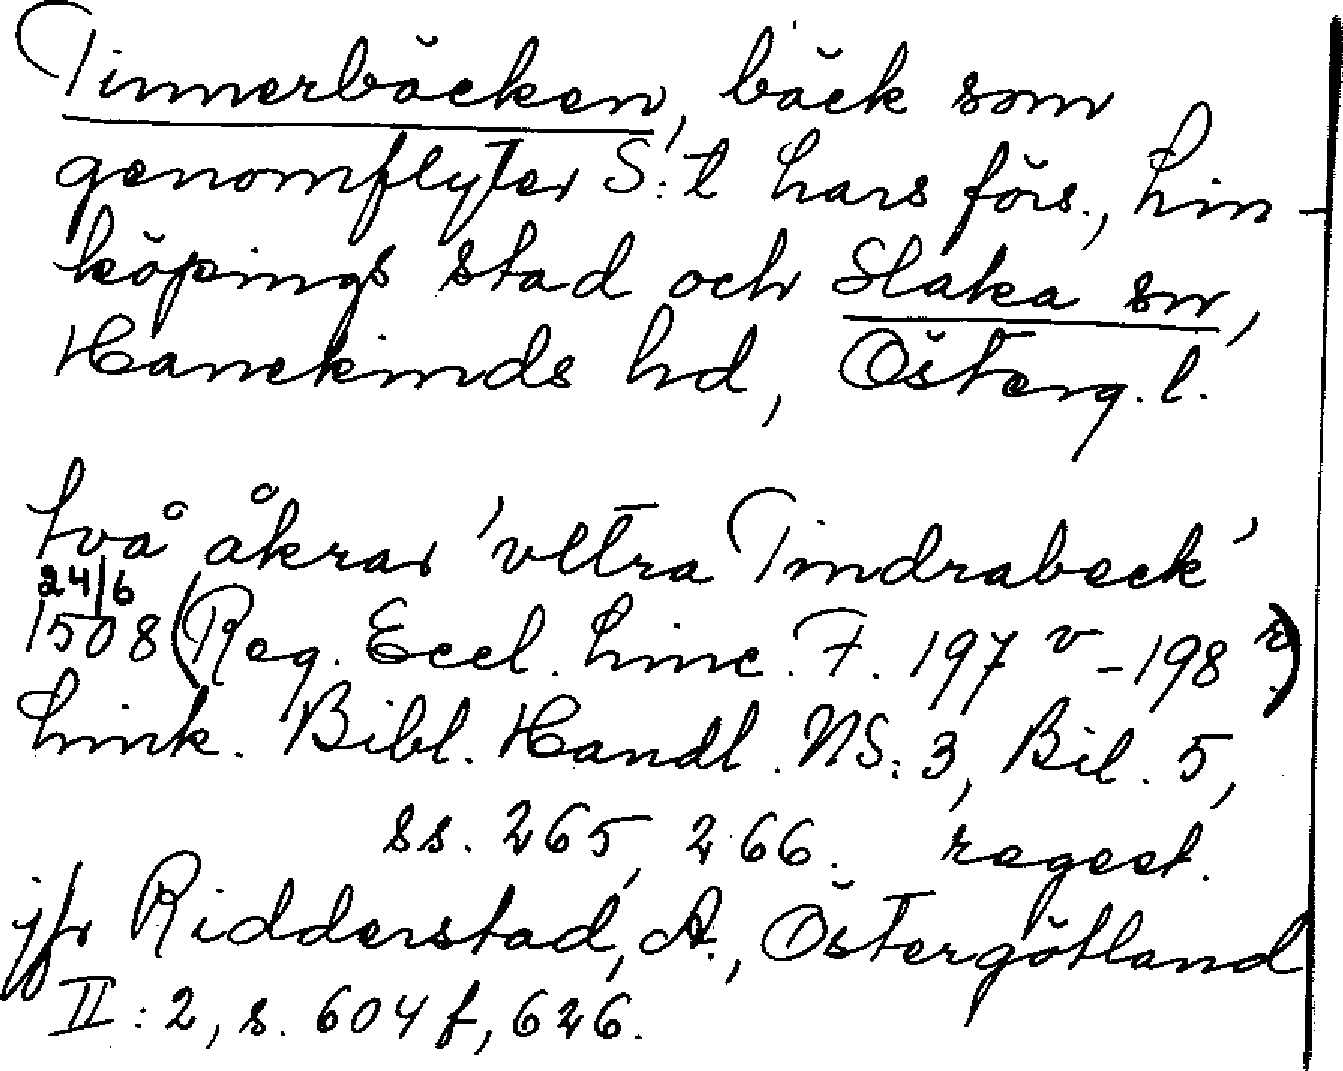 Tinnerbäcken, bäck som
genomflyter S:t Lars förs., Lin-
köpings stad och Slaka sn,
Hanekinds hd, Österg. l.
två åkrar 'vltra Tindrabeck'
24/6
1508 (Reg. Eccl. Linc. F. 197 v - 198 r)
Link. Bibl. Handl. NS: 3, Bil. 5,
ss. 265, 266. regest.
jfr Ridderstad, A., Östergötland
II: 2, s. 604 f, 626.